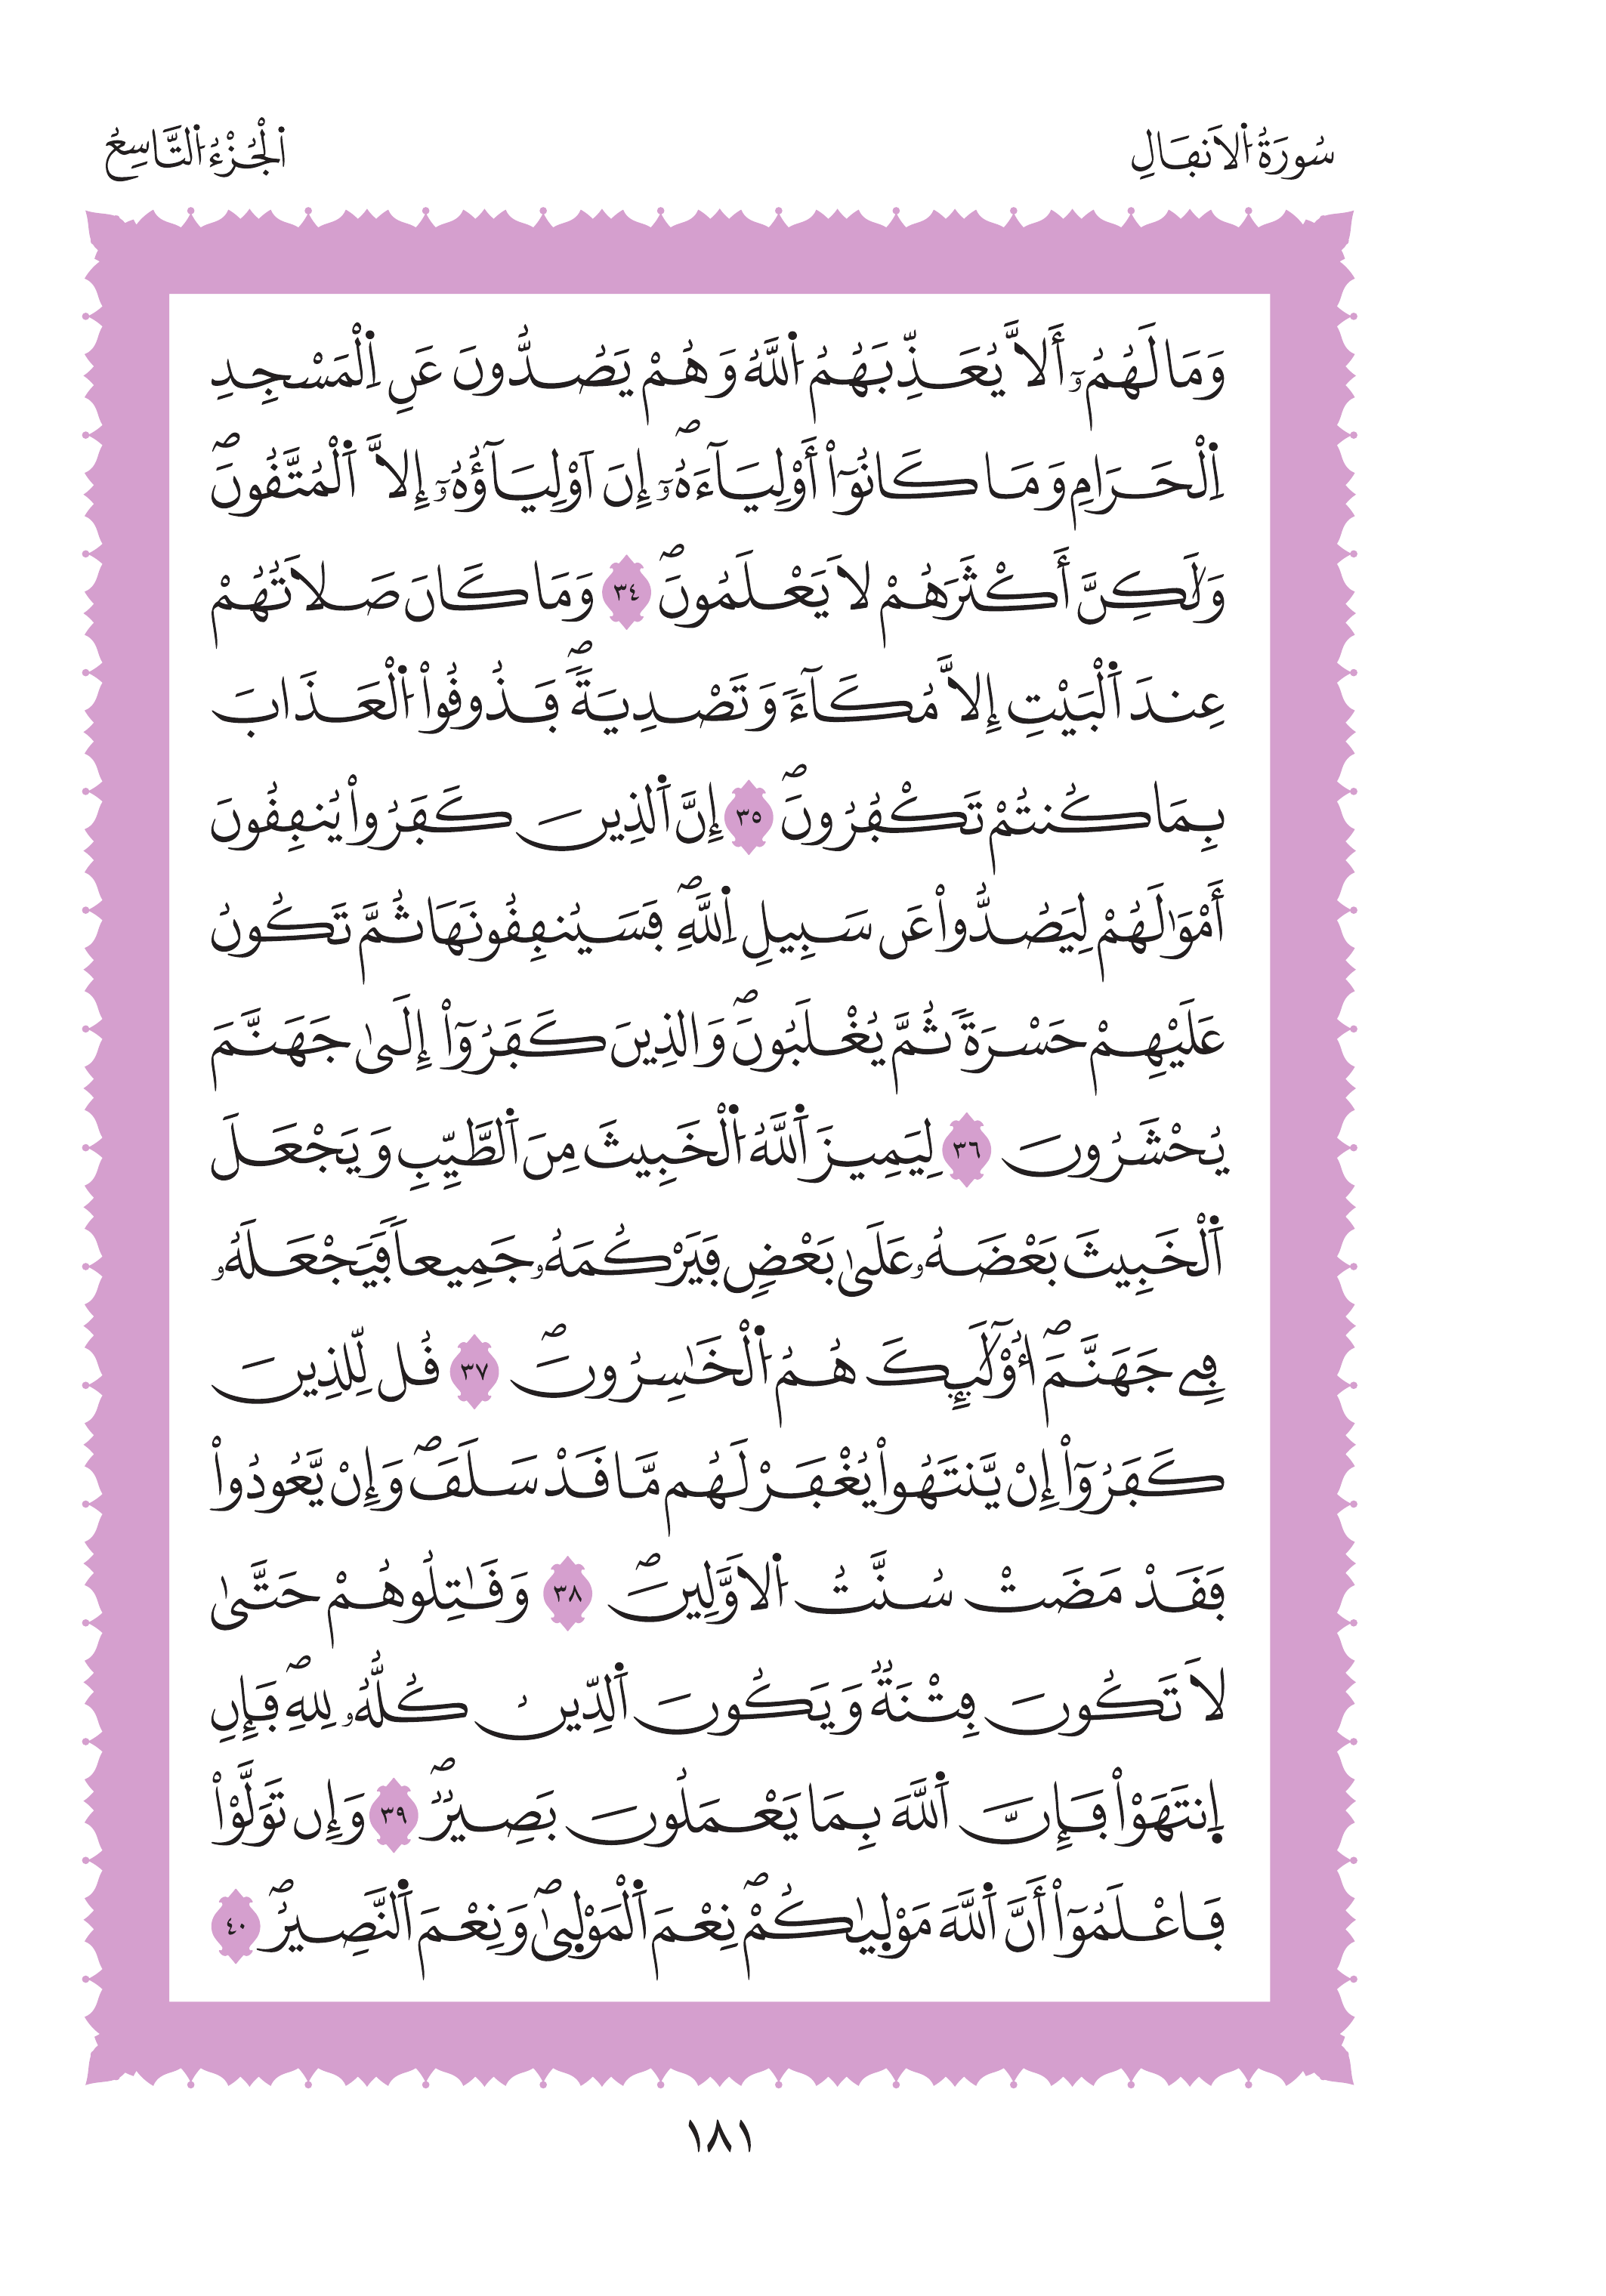 سُورَةُ اُ۬لَانفَالِ
اَ۬لْجُزْءُ اُ۬لتَّاسِعُ
وَمَا لَهُمُۥٓ أَلَّا يُعَذِّبَهُمُ اُ۬للَّهُ وَهُمْ يَصُدُّونَ عَنِ اِ۬لْمَسْجِدِ
اِ۬لْحَرَامِ وَمَا كَانُوٓاْ أَوْلِيَآءَهُۥٓۖ إِنَ اَوْلِيَآؤُهُۥٓ إِلَّا اَ۬لْمُتَّفُونَۖ
وَلَٰكِنَّ أَكْثَرَهُمْ لَا يَعْلَمُونَۖ ٣٤ وَمَا كَانَ صَلَاتُهُمْ
عِندَ اَ۬لْبَيْتِ إِلَّا مُكَآءٗ وَتَصْدِيَةٗۖ ڢَذُوفُواْ اُ۬لْعَذَابَ
بِمَا كُنتُمْ تَكْڢُرُونَۖ ٣٥ إِنَّ اَ۬لذِينَ كَڢَرُواْ يُنڢِفُونَ
أَمْوَٰلَهُمْ لِيَصُدُّواْ عَن سَبِيلِ اِ۬للَّهِۖ ڢَسَيُنڢِفُونَهَا ثُمَّ تَكُونُ
عَلَيْهِمْ حَسْرَةٗ ثُمَّ يُغْلَبُونَۖ وَالذِينَ كَڢَرُوٓاْ إِلَىٰ جَهَنَّمَ
يُحْشَرُونَ ٣٦ لِيَمِيزَ اَ۬للَّهُ اُ۬لْخَبِيثَ مِنَ اَ۬لطَّيِّبِ وَيَجْعَلَ
اَ۬لْخَبِيثَ بَعْضَهُۥ عَلَىٰ بَعْضٖ ڢَيَرْكُمَهُۥ جَمِيعاٗ ڢَيَجْعَلَهُۥ
ڢِے جَهَنَّمَۖ أُوْلَٰٓئِكَ هُمُ اُ۬لْخَٰسِرُونَۖ ٣٧ فُل لِّلذِينَ
كَڢَرُوٓاْ إِنْ يَّنتَهُواْ يُغْڢَرْ لَهُم مَّا فَدْ سَلَفَۖ وَإِنْ يَّعُودُواْ
ڢَفَدْ مَضَتْ سُنَّتُ اُ۬لَاوَّلِينَۖ ٣٨ وَفَٰتِلُوهُمْ حَتَّىٰ
لَا تَكُونَ ڢِتْنَةٞ وَيَكُونَ اَ۬لدِّينُ كُلُّهُۥ لِلهِۖ ڢَإِنِ
اِ۪نتَهَوْاْ ڢَإِنَّ اَ۬للَّهَ بِمَا يَعْمَلُونَ بَصِيرٞۖ ٣٩ وَإِن تَوَلَّوْاْ
ڢَاعْلَمُوٓاْ أَنَّ اَ۬للَّهَ مَوْل۪يٰكُمْۖ نِعْمَ اَ۬لْمَوْل۪ىٰۖ وَنِعْمَ اَ۬لنَّصِيرُۖ ٤٠
١٨١